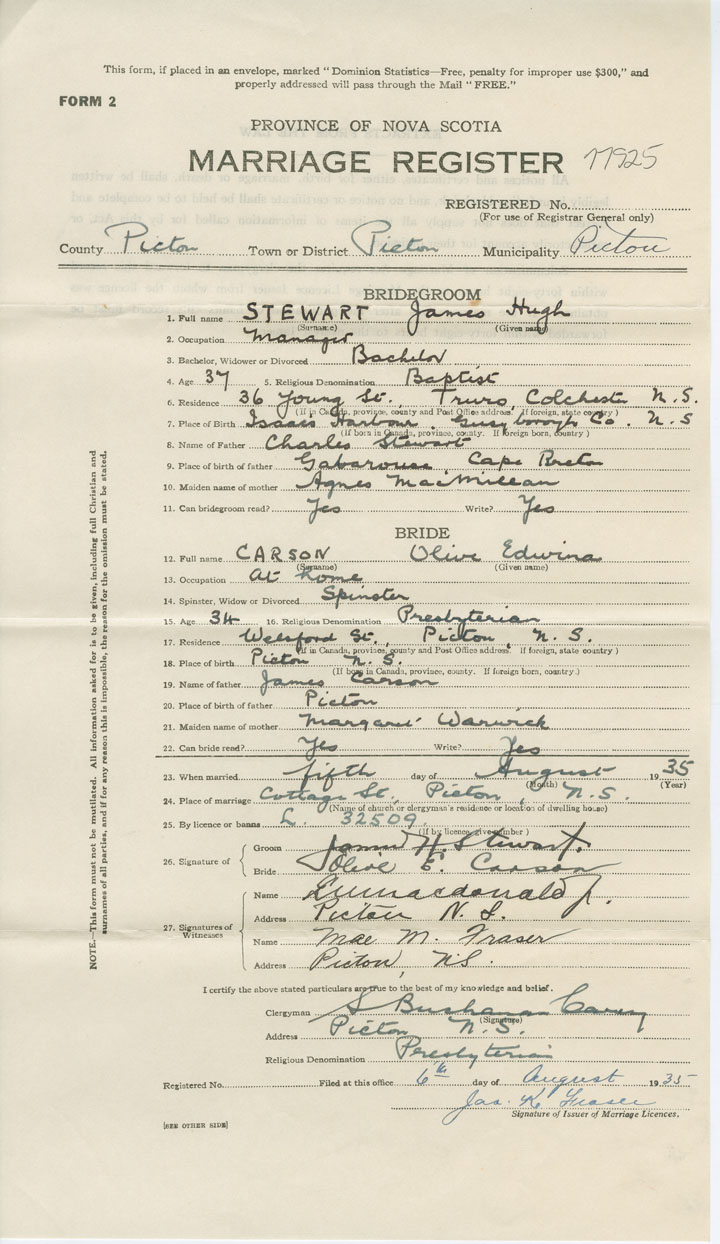 This form, if placed in an envelope, marked "Dominion Statistics—Free, penalty for improper use $300," and
properly addressed will pass through the Mail "FREE."
FORM 2
PROVINCE OF NOVA SCOTIA
MARRIAGE REGISTER 77925
REGISTERED No.
(For use of Registrar General only)
County Pictou Town or District Pictou Municipality Pictou
BRIDEGROOM
1. Full name STEWART James Hugh
(Surname) (Given name)
2. Occupation Manager
3. Bachelor, Widower or Divorced Bachelor
4. Age 37 5. Religious Denomination Baptist
6. Residence 36 Young St., Truro, Colchester N.S.
(If in Canada, province, county and Post Office address. If foreign, state country)
7. Place of Birth Isaacs Harbour, Guysborough Co. N.S
(If born in Canada, province, county. If foreign born, country)
8. Name of Father Charles Stewart
9. Place of birth of father Gabarouse, Cape Breton
10. Maiden name of mother Agnes MacMillan
11. Can bridegroom read? Yes Write? Yes
BRIDE
12. Full name CARSON Olive Edwina
(Surname) (Given name)
13. Occupation At home
14. Spinster, Widow or Divorced Spinster
15. Age 34 16. Religious Denomination Presbyterian
17. Residence Welsford St., Pictou, N.S.
(If in Canada, province, county and Post Office address. If foreign, state country)
18. Place of birth Pictou N.S.
(If born in Canada, province, county. If foreign born, country.)
19. Name of father James Carson
20. Place of birth of father Pictou
21. Maiden name of mother Margaret Warwick
22. Can bride read? Yes Write? Yes
23. When married fifth day of August 1935
(Month) (Year)
24. Place of marriage Cottage St., Pictou, N.S.
(Name of church or clergyman's residence or location of dwelling house)
25. By licence or banns L. 32509
(If by licence give number)
26. Signature of
Groom James H. Stewart.
Bride Olive E. Carson
27. Signatures of Witnesses
Name macdonald Jr.
Address Pictou N.S.
Name Mae M. Fraser
Address Pictou, N.S.
I certify the above stated particulars are true to the best of my knowledge and belief.
Clergyman S Buchanan Carey
(Signature)
Address Pictou N.S.
Religious Denomination Presbyterian
Registered No. Filed at this office 6th day of August 1935
Jas. K. Fraser
Signature of Issuer of Marriage Licences.
[SEE OTHER SIDE]
NOTE.—This form must not be mutilated. All information asked for is to be given, including full Christian and
surnames of all parties, and if for any reason this is impossible, the reason for the omission must be stated.